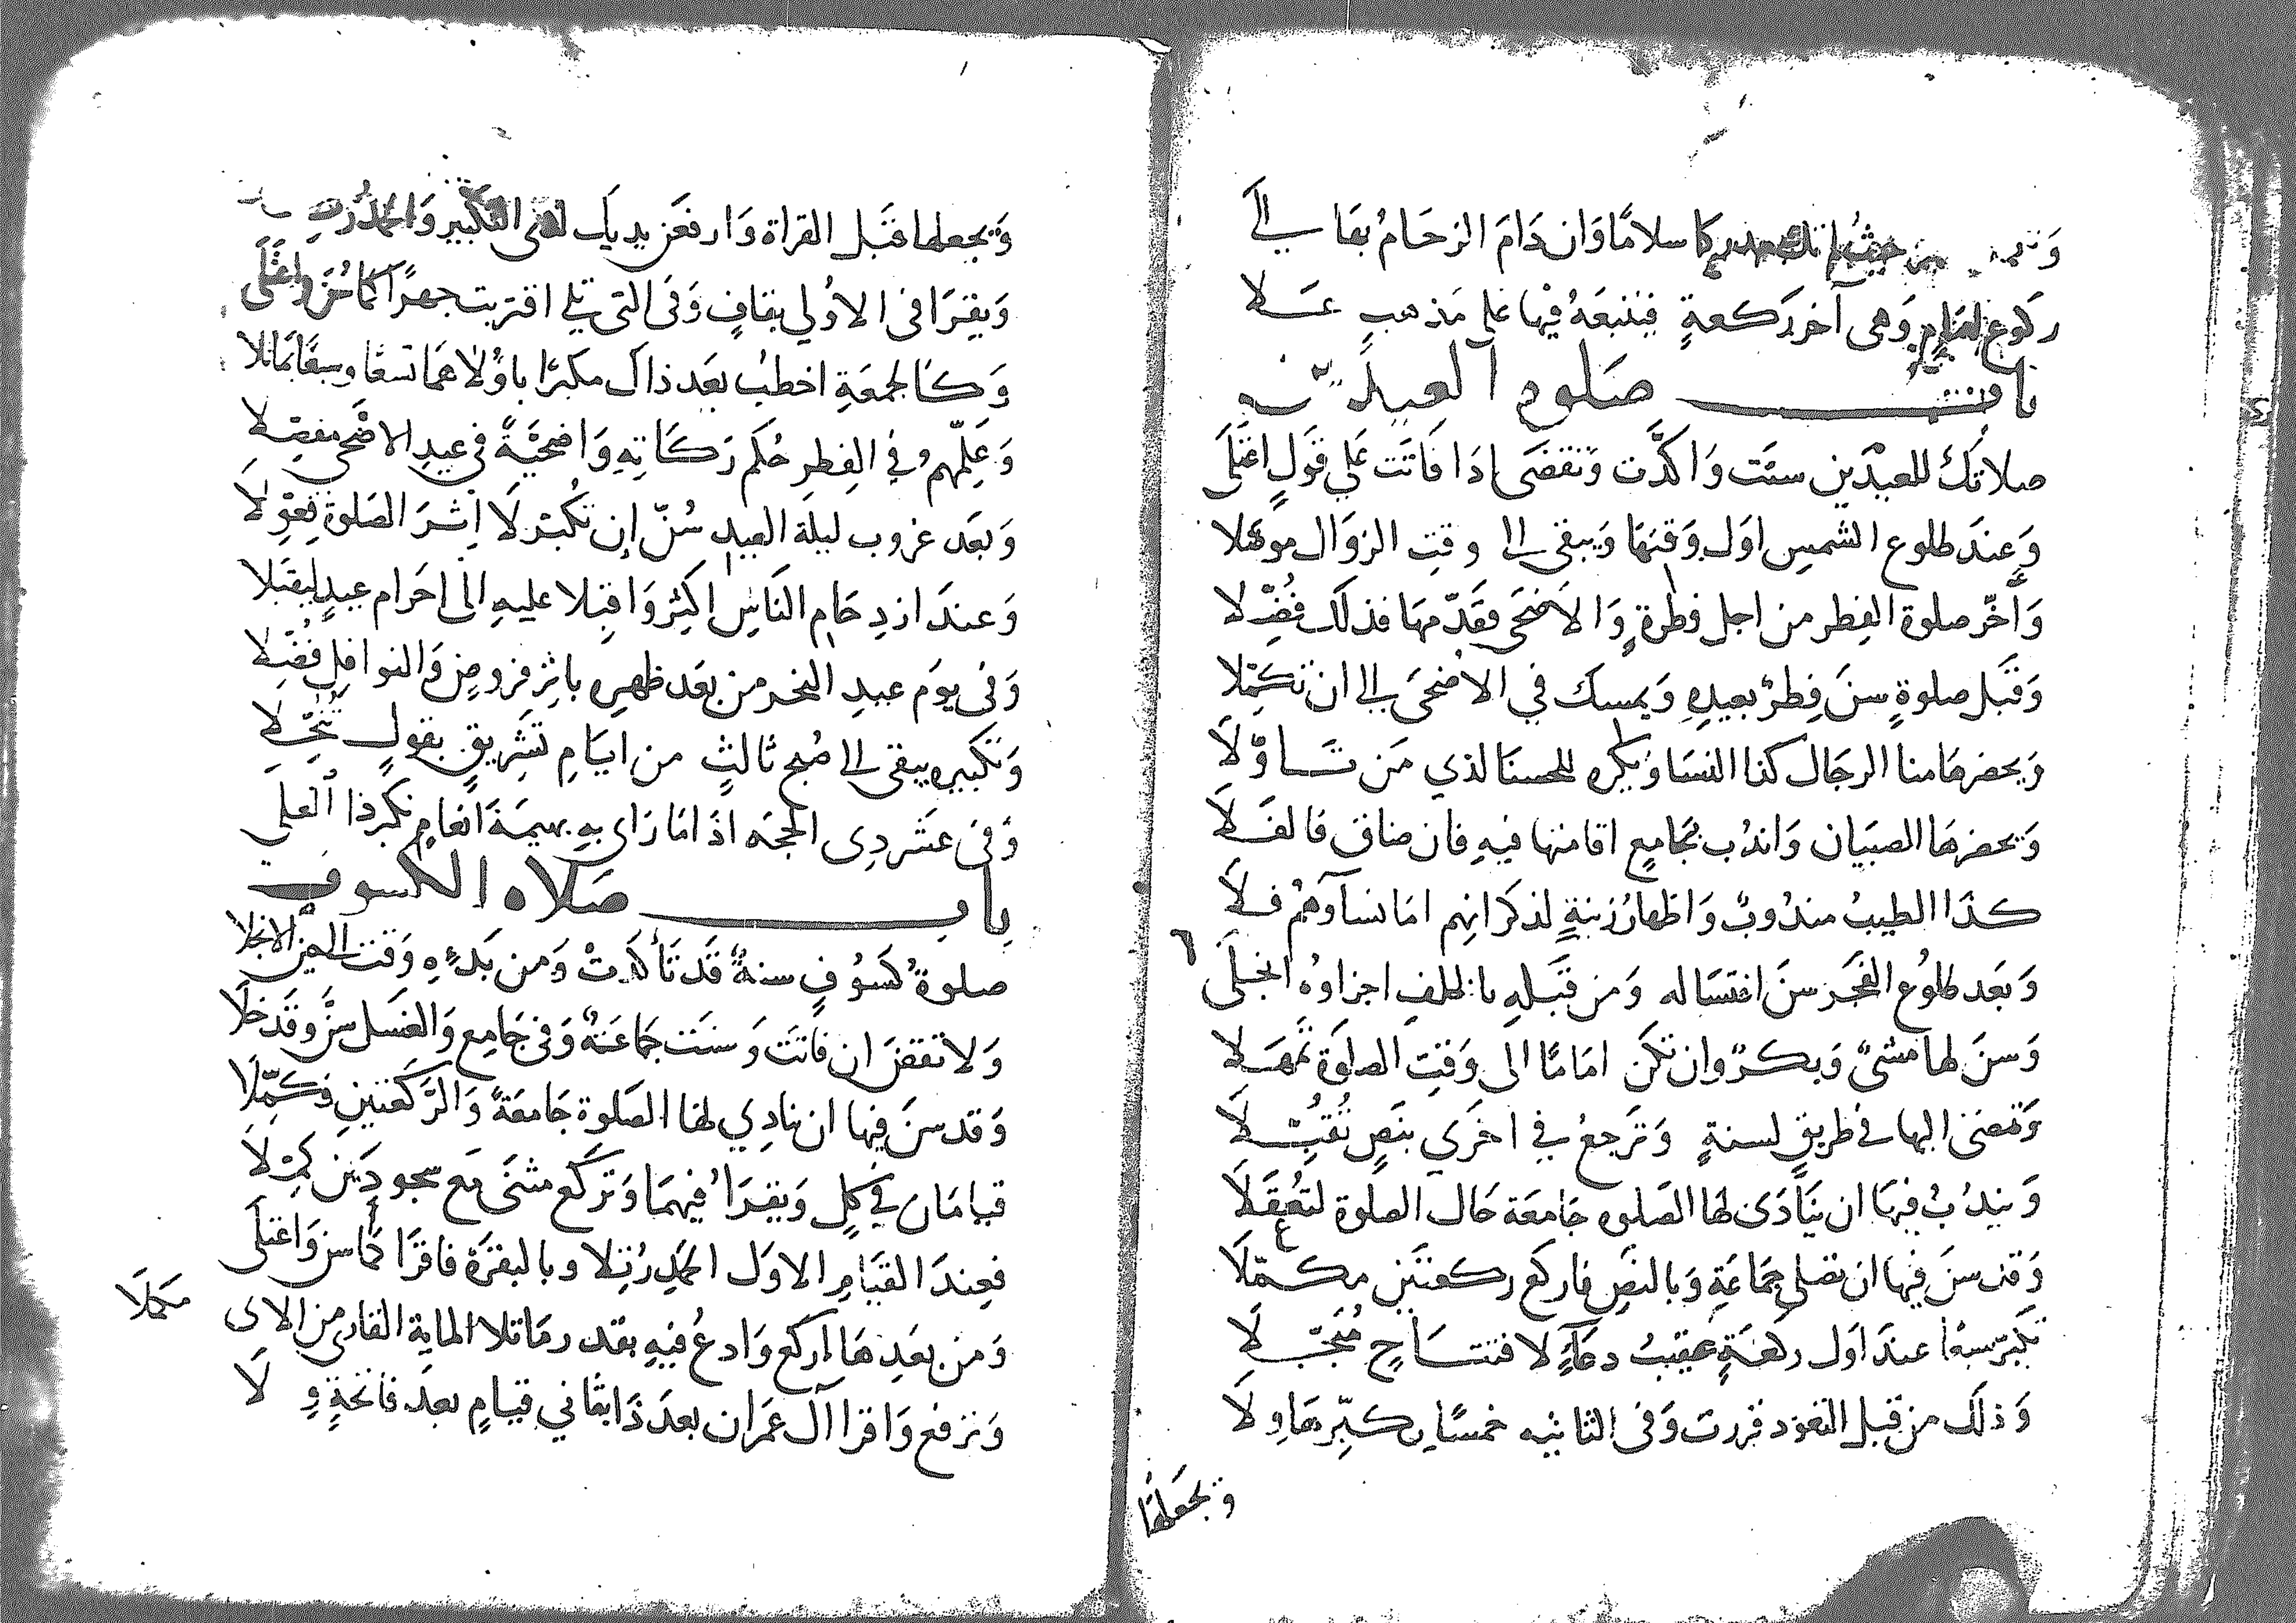 سلاما وان دام الزحام بقا الى
ركوع وهي آخر ركعة فيتبعه فيها على مذهب علا
باب صلوة العيدين
صلاتك للعيدين سنت واكدت وتقضى اذا فاتت على قول اعتلى
وعند طلوع الشمس اول وقتها ويبقى الى وقت الزوال موصلا
واخر صلوة الفطر من اجل فطرة والاضحى فقدمها فذلك فضلا
وقبل صلوة سن فطر بعيده ويمسك في الاضحى الى ان تكملا
ويحضرها منا الرجال كذا النسا ويكره للحسنا لذي من تاولا
ويحضرها الصبيان واندب بجامع اقامتها فيه فان ضاق فالفلا
كذا الطيب مندوب واظهار زينة لذكرانهم اما نساؤهم فلا
وبعد طلوع الفجر سن اغتساله ومن قبله بالخلف اجزاؤه انجلى
وسن لها مشي وبكر وان تكن اماما الى وقت الصلوة تمهلا
وتمضى اليها في طريق لسنة وترجع في اخرى بنص تقبلا
ويندب فيها ان ينادى لها الصلوه جامعة حال الصلوة لتعقلا
وقد سن فيها ان تصلي جماعة وبالنص فاركع ركعتين مكملا
تكبر سبعا عند اول ركعة عقيب دعاء لافتتاح مبجلا
وذلك من قبل التعوذ قررت وفي الثانيه خمسا يكبرها ولا
وتجعلها
ويجعلها قبل القراة وارفعن يديك لدى التكبير والحمد
ويقرا في الاولي بقاف وفي التي تلي اقتربت جهرا
وكالجمعة اخطب بعد ذاك مكبرا باولاهما تسعا وسبعا بما تلا
وعلمهم في الفطر حكم زكاته واضحية في عيد الاضحى مفصلا
وبعد غروب ليلة العيد سن ان تكبر لا اثر الصلوة فعولا
وعند ازدحام الناس اكثر واقبلا عليه الى احرام عيد ليقبلا
وفى يوم عيد النحر من بعد ظهره باثر فروض والنوافل فضلا
وتكبيره يبقى الى صبح ثالث من ايام تشريق بقول تبجلا
وفى عشر ذى الحجه اذا ما راى به بهيمة انعام تكبر ذا العلى
باب صلاه الكسوف
صلوة كسوف سنة قد تأكدت ومن بدءه وقت الى حين الانجلا
ولا تقض ان فاتت وسنت جماعة وفى جامع والغسل سن وقد خلا
وقد سن فيها ان نادي لها الصلوة جامعة والركعتين وكملا
قيامان في كل ويقرا فيهما وتركع مثنى مع سجودين
فعند القيام الاول الحمد رتلا وبالبقرة فاقرا كما سن واعتلى
ومن بعدها اركع وادع فيه بقدر ما تلا الماية القارى من الاى مكملا
وترفع واقرا آل عمران بعد ذا بثاني قيام بعد فاتحة ولا